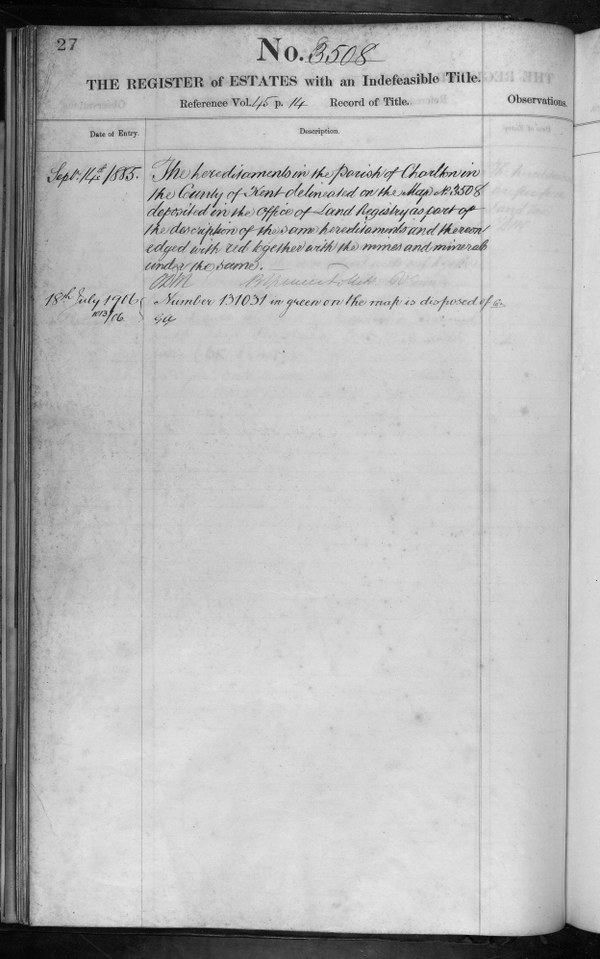 27
No. 3508
THE REGISTER of ESTATES with an Indefeasible Title.
Reference Vol. 45 p. 14 Record of Title.
Observations.
Date of Entry. Description.
Septr. 14th 1885. The hereditaments in the Parish of Charlton in
the County of Kent delineated on the Map No. 3508
deposited in the Office of Land Registry as part of
the description of the same hereditaments and thereon
edged with red together with the mines and minerals
under the same.
18th July 1916 Number 131031 in green on the map is disposed of
1013/16